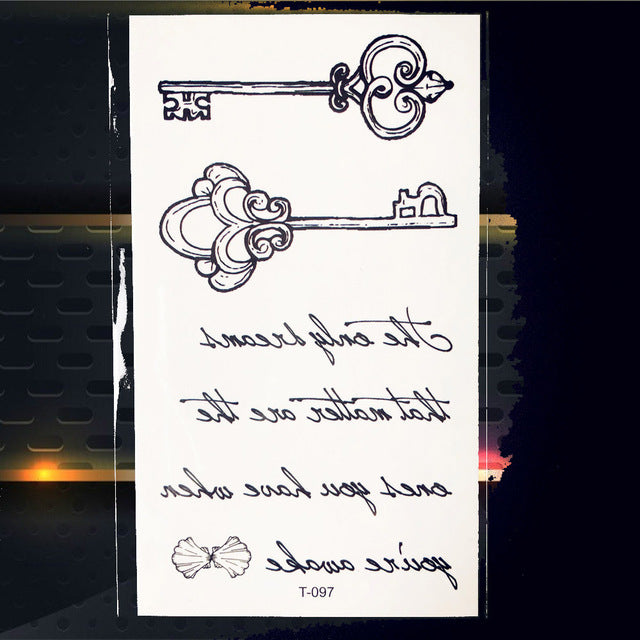 The only dreams
that matter are the
ones you have when
you're awake
T-097